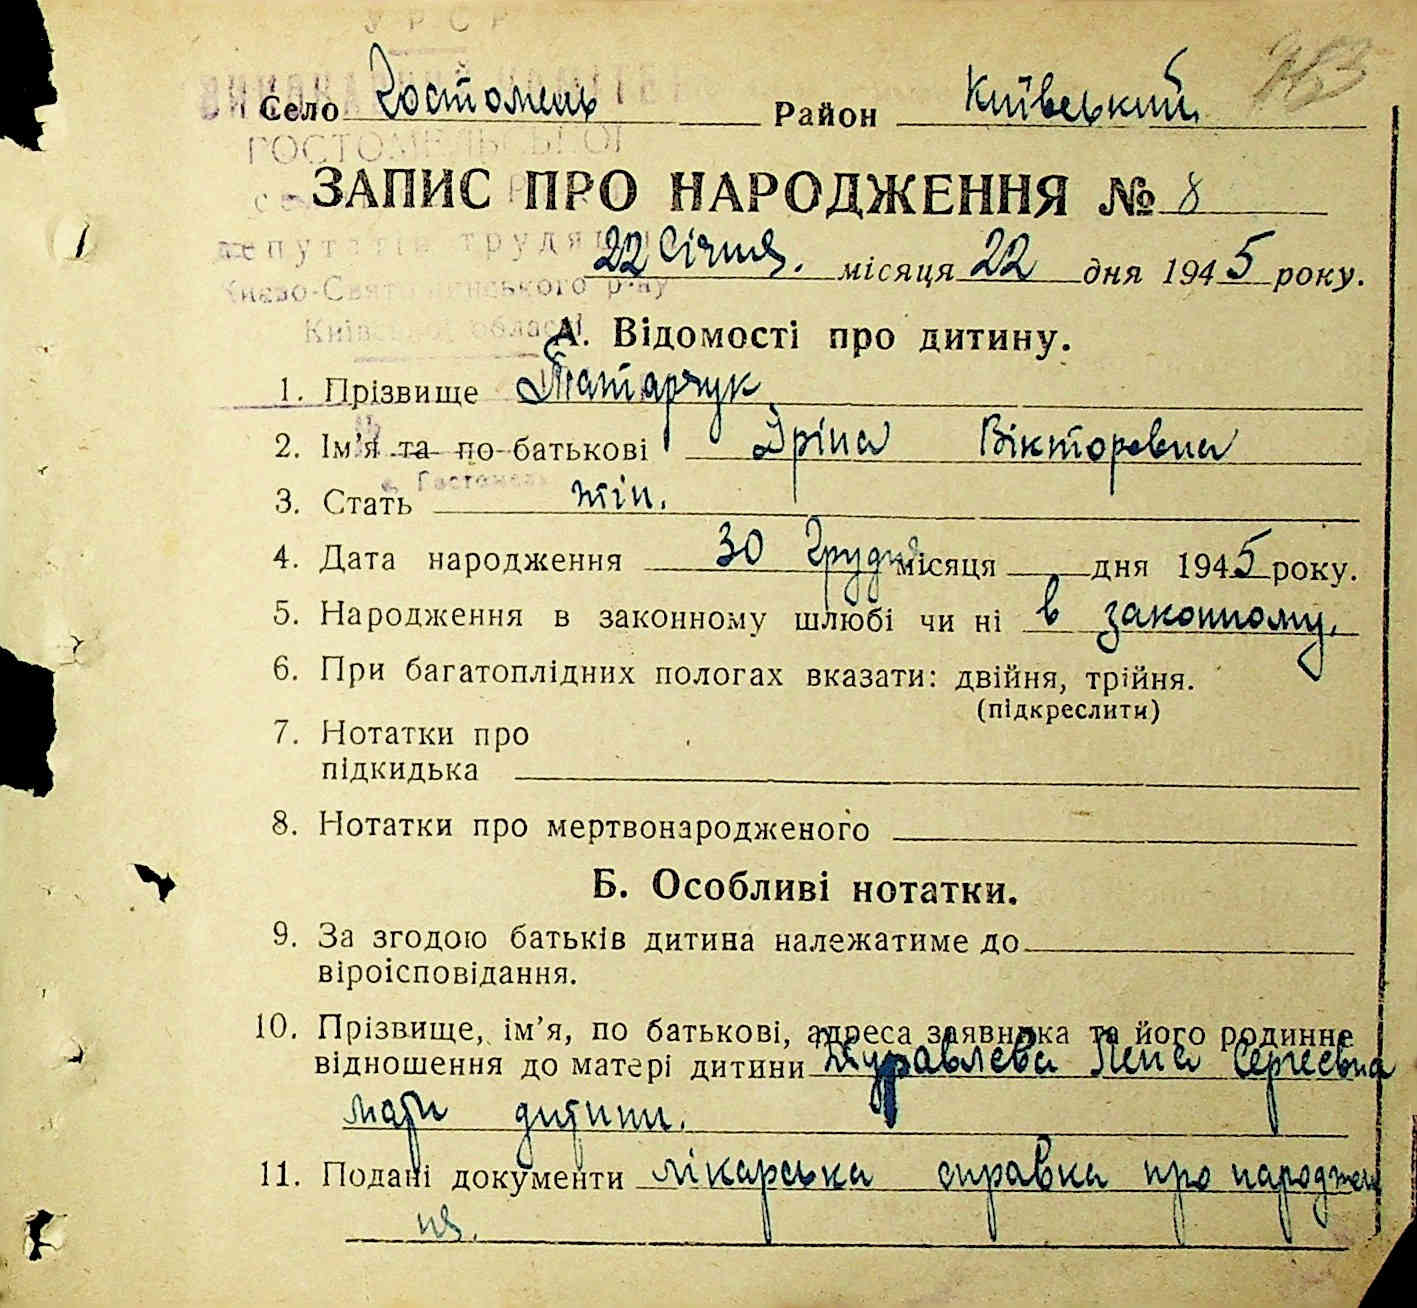 УРСР
ВИКОНАВЧИЙ КОМІТЕТ
Село Гостомель Район Київський
ГОСТОМЕЛЬСЬКОЇ
ЗАПИС ПРО НАРОДЖЕННЯ № 8
депутатів трудящих
22 Січня. місяця 22 дня 1945 року.
Києво-Святошинського р-ну
Київської області
А. Відомості про дитину.
1. Прізвище Татарчук
2. Ім'я та по-батькові Іріна Вікторовна
с. Гостомель
3. Стать жін.
4. Дата народження 30 Грудня місяця дня 1945 року.
5. Народження в законному шлюбі чи ні в законному.
6. При багатоплідних пологах вказати: двійня, трійня.
(підкреслити)
7. Нотатки про
підкидька
8. Нотатки про мертвонародженого
Б. Особливі нотатки.
9. За згодою батьків дитина належатиме до
віроісповідання.
10. Прізвище, ім'я, по батькові, адреса заявника та його родинне
відношення до матері дитини Журавлева Лена Сергеевна
мати дитини.
11. Подані документи лікарська справка про народжен
ня.